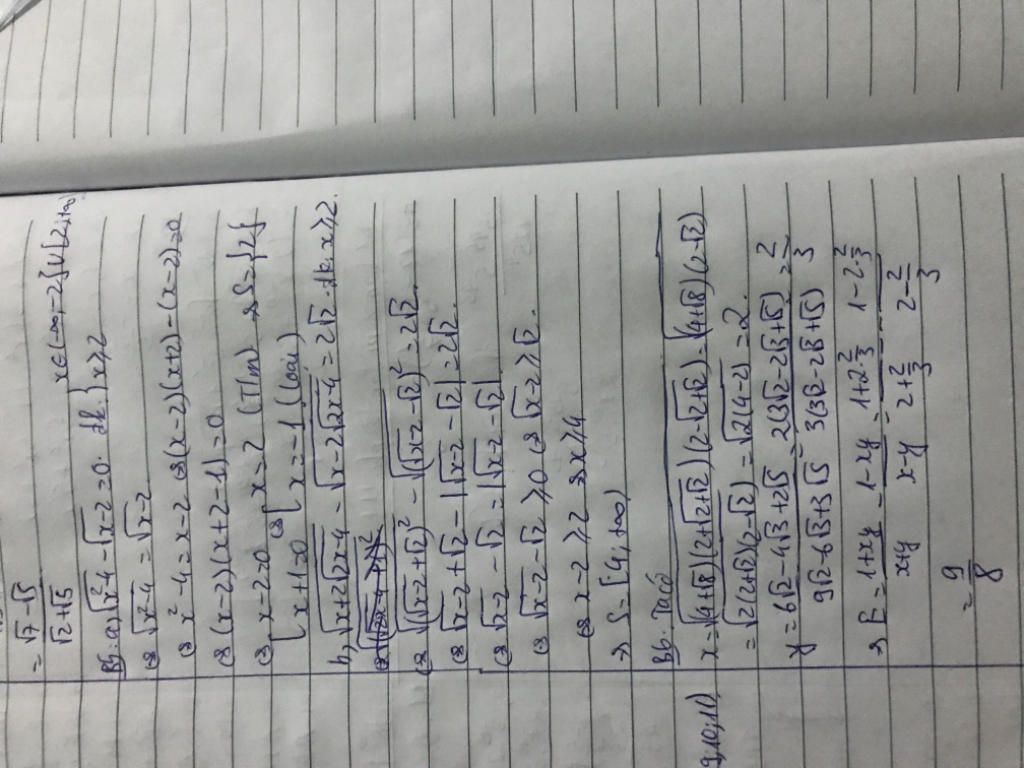 = \frac{\sqrt{7}-\sqrt{5}}{\sqrt{2}+\sqrt{5}}
x∈(-∞,-2}∪[2,+∞)
B5: a) \sqrt{x²-4} - \sqrt{x-2} = 0. đk: } x≥2
⇔ \sqrt{x²-4} = \sqrt{x-2}
⇔ x²-4 = x-2 ⇔ (x-2)(x+2)-(x-2)=0
⇔ (x-2)(x+2-1)=0
⇔ [ x-2=0 ⇔ [ x=2 (T/m) → S={2}
[ x+1=0 [ x=-1 (loại)
b, \sqrt{x+2\sqrt{2x-4}} - \sqrt{x-2\sqrt{2x-4}} = 2\sqrt{2} đk: x≥2.
⇔ \sqrt{(\sqrt{x-2}+\sqrt{2})²} - \sqrt{(\sqrt{x-2}-\sqrt{2})²} = 2\sqrt{2}.
⇔ \sqrt{x-2}+\sqrt{2} - |\sqrt{x-2}-\sqrt{2}| = 2\sqrt{2}.
⇔ \sqrt{x-2} - \sqrt{2} = |\sqrt{x-2}-\sqrt{2}|
⇔ \sqrt{x-2} - \sqrt{2} ≥ 0 ⇔ \sqrt{x-2} ≥ \sqrt{2}.
⇔ x-2 ≥ 2 ⇔ x≥4
→ S = [4,+∞)
9,10,11)
B6. Ta có
x = \sqrt{(4+\sqrt{8})(2+\sqrt{2+\sqrt{2}})(2-\sqrt{2+\sqrt{2}})} = \sqrt{(4+\sqrt{8})(2-\sqrt{2})}
= \sqrt{2(2+\sqrt{2})(2-\sqrt{2})} = \sqrt{2(4-2)} = 2.
y = \frac{6\sqrt{2}-4\sqrt{3}+2\sqrt{5}}{9\sqrt{2}-6\sqrt{3}+3\sqrt{5}} = \frac{2(3\sqrt{2}-2\sqrt{3}+\sqrt{5})}{3(3\sqrt{2}-2\sqrt{3}+\sqrt{5})} = \frac{2}{3}
→ E = \frac{1+xy}{x+y} - \frac{1-xy}{x-y} = \frac{1+2·\frac{2}{3}}{2+\frac{2}{3}} - \frac{1-2·\frac{2}{3}}{2-\frac{2}{3}}
= \frac{9}{8}